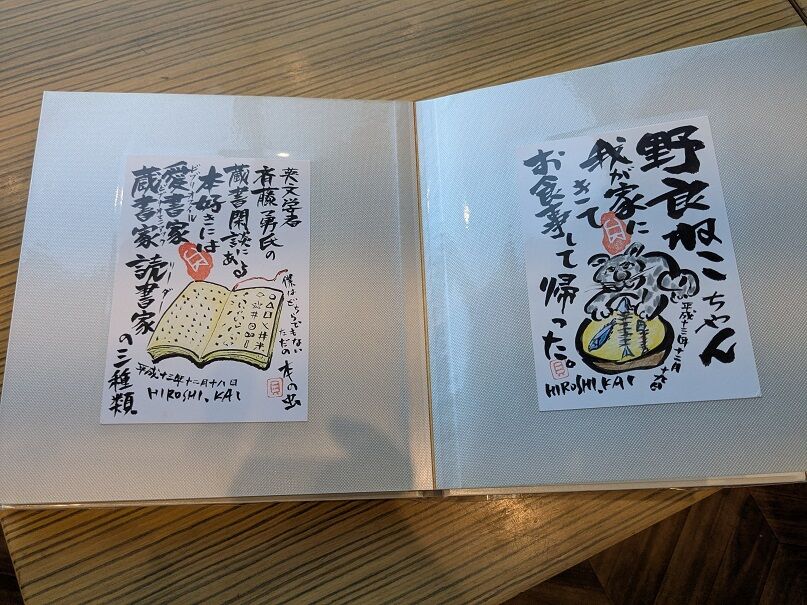 英文学者
斉藤勇氏の
蔵書閑談にある
本好きには
ビブリオフィル
愛書家
リーダー
蔵書家 読書家の三種類
僕はどちらでもない
ただの本の虫
平成十三年十二月十八日
HIROSHI.KAI
野良ねこちゃん
我が家に
きて
お食事して帰った。
平成十三年十二月十九日
HIROSHI.KAI